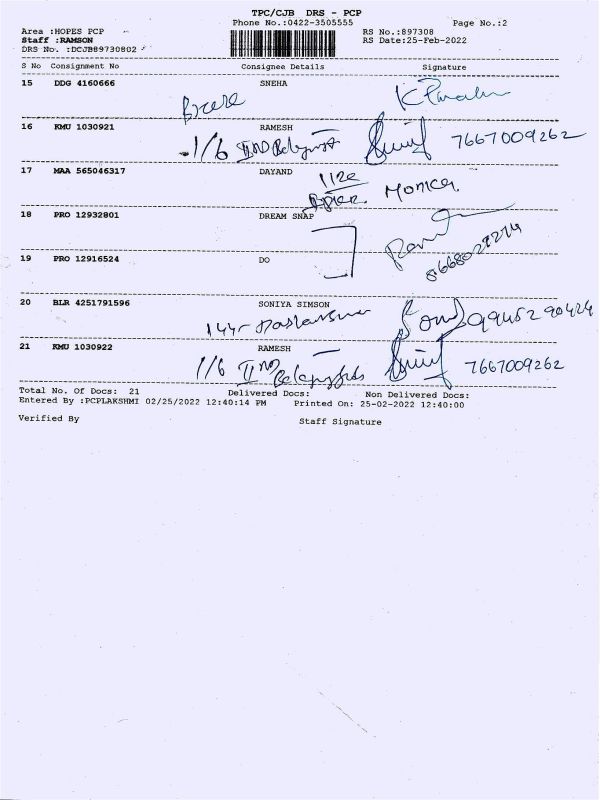 TPC/CJB DRS - PCP
Phone No.:0422-3505555 Page No.:2
Area :HOPES PCP RS No.:897308
Staff :RAMSON RS Date:25-Feb-2022
DRS No. :DCJB89730802
S No Consignment No Consignee Details Signature
15 DDG 4160666 SNEHA
16 KMU 1030921 RAMESH
1/6 IInd 7667009262
17 MAA 565046317 DAYAND
Monica
18 PRO 12932801 DREAM SNAP
19 PRO 12916524 DO
20 BLR 4251791596 SONIYA SIMSON
21 KMU 1030922 RAMESH
1/6 IInd 7667009262
Total No. Of Docs: 21 Delivered Docs: Non Delivered Docs:
Entered By :PCPLAKSHMI 02/25/2022 12:40:14 PM Printed On: 25-02-2022 12:40:00
Verified By Staff Signature